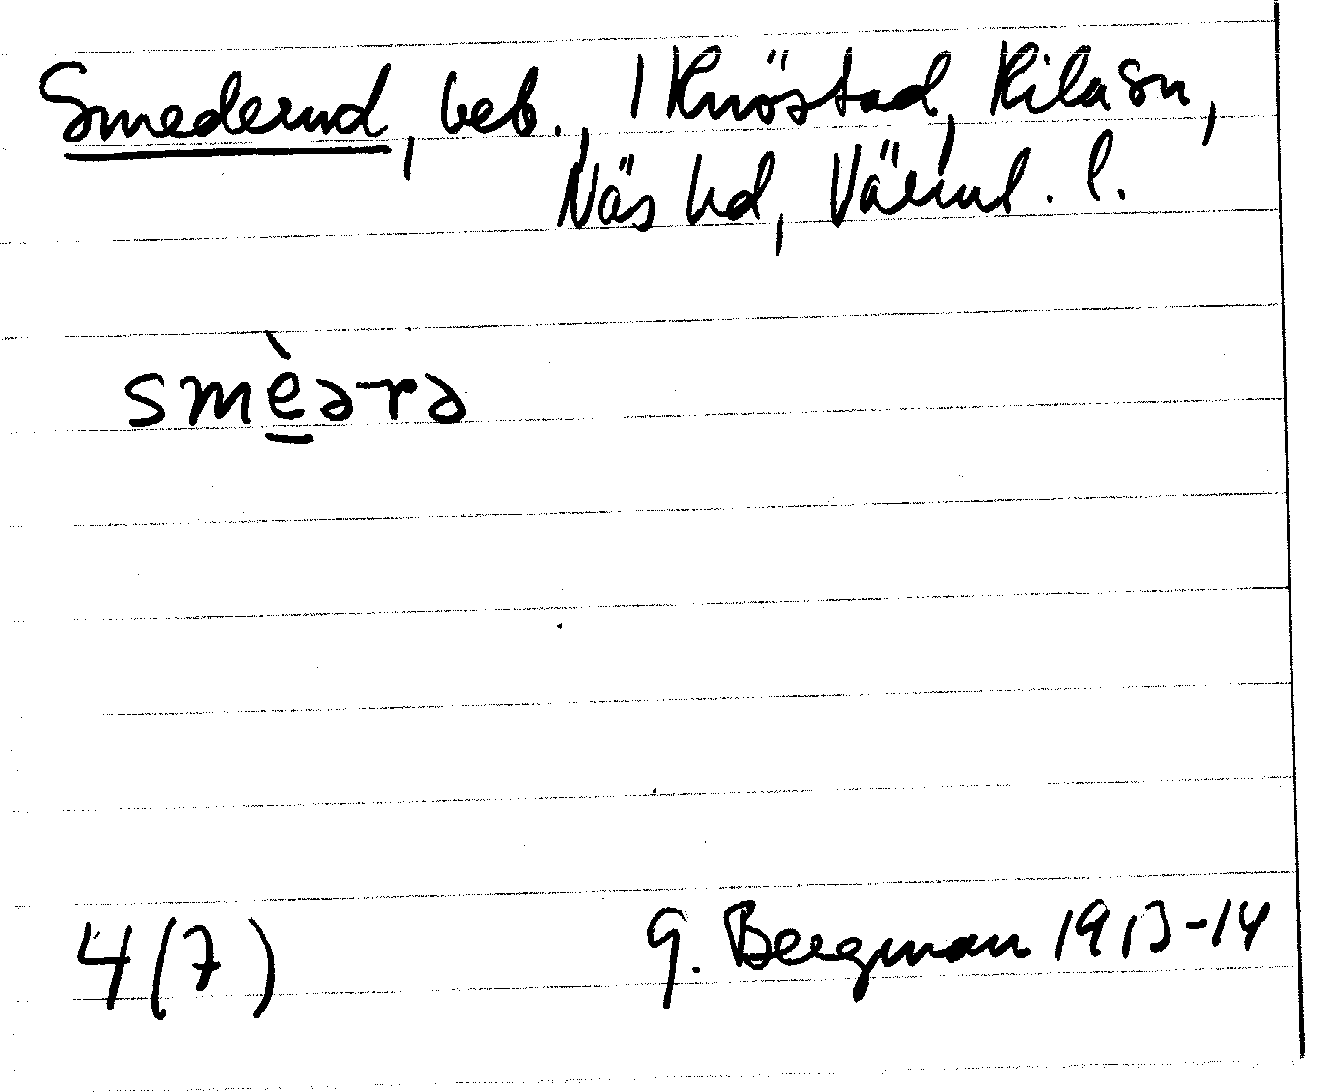 Smederud, beb., 1 Knöstad, Kila sn,
Näs hd, Värml. l.
smè̲ə-rə
4(7) G. Bergman 1913-14